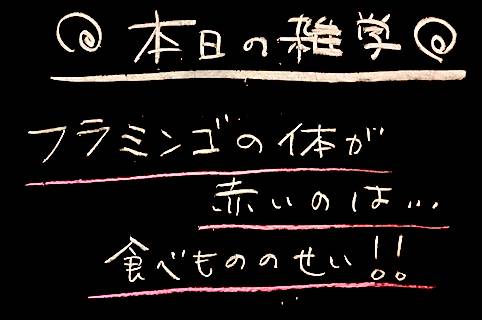 本日の雑学
フラミンゴの体が
赤いのは...
食べもののせい!!